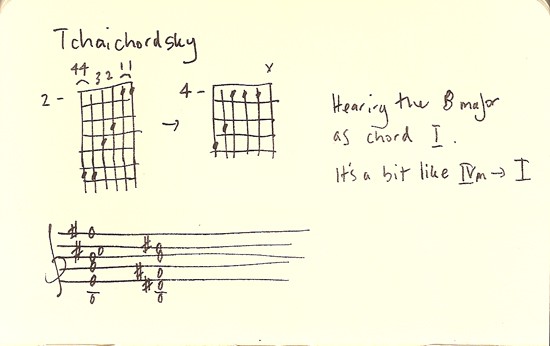 Tchaichordsky
44 3 2 11
x
2 -
4 -
→
Hearing the B major
as chord I.
It's a bit like IVm → I